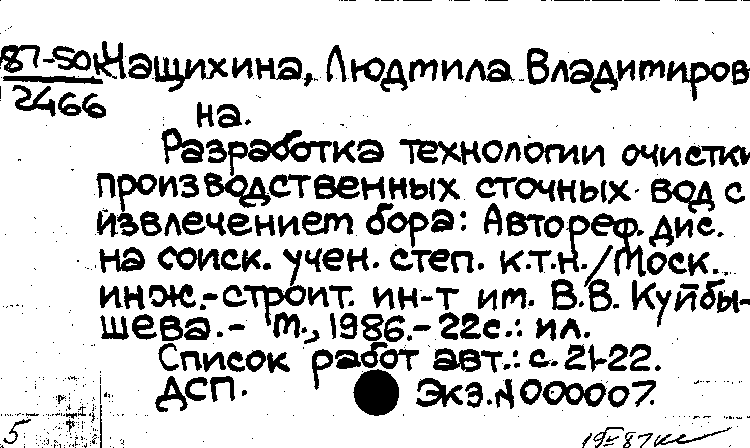 87-50к Чащихина, Людмила Владимиров-
2466
на.
Разработка технологии очистки
производственных сточных вод с
извлечением бора: Автореф. дис.
на соиск. учен. степ. к.т.н./Моск.
инж.-строит. ин-т им. В.В. Куйбы-
шева.- М., 1986.- 22с.: ил.
Список работ авт.: с. 21-22.
ДСП. Экз.N 000007.
5